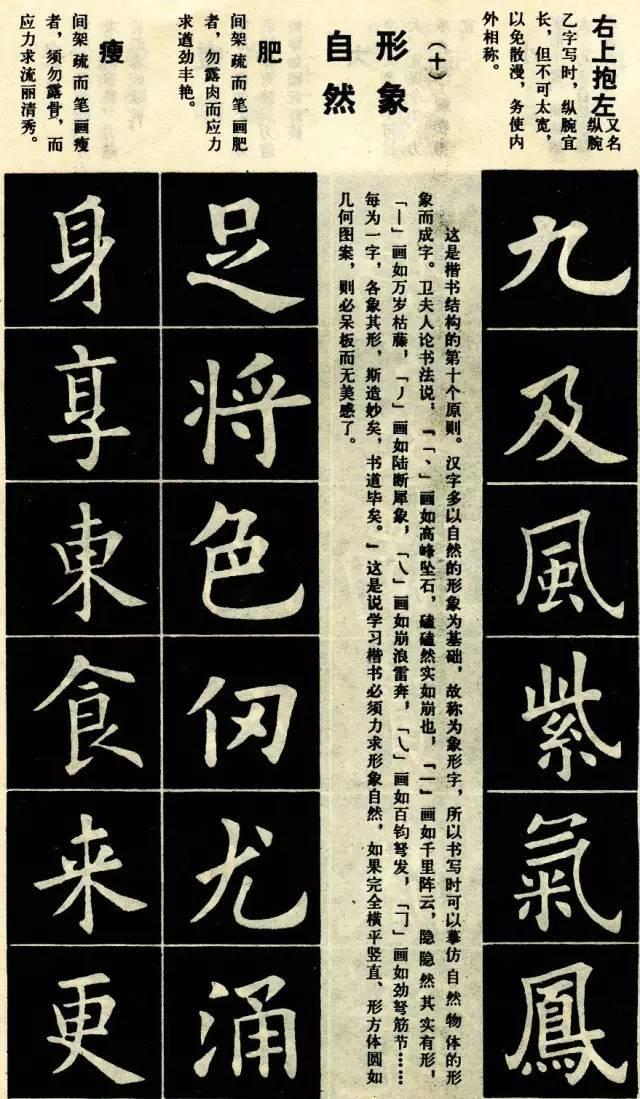 右上抱左
又名纵腕
乙字写时，纵腕宜
长，但不可太宽，
以免散漫，务使内
外相称。
九
及
風
紫
氣
鳳
（十）
形象
自然
这是楷书结构的第十个原则。汉字多以自然的形象为基础，故称为象形字，所以书写时可以摹仿自然物体的形
象而成字。卫夫人论书法说，『「丶」画如高峰坠石，磕磕然实如崩也，「一」画如千里阵云，隐隐然其实有形，
「丨」画如万岁枯藤，「丿」画如陆断犀象，「乀」画如崩浪雷奔，「㇂」画如百钧弩发，「㇆」画如劲弩筋节……
每为一字，各象其形，斯造妙矣，书道毕矣。』这是说学习楷书必须力求形象自然，如果完全横平竖直、形方体圆如
几何图案，则必呆板而无美感了。
肥
间架疏而笔画肥
者，勿露肉而应力
求道劲丰艳。
足
将
色
仞
尤
涌
瘦
间架疏而笔画瘦
者，须勿露骨，而
应力求流丽清秀。
身
享
東
食
来
更